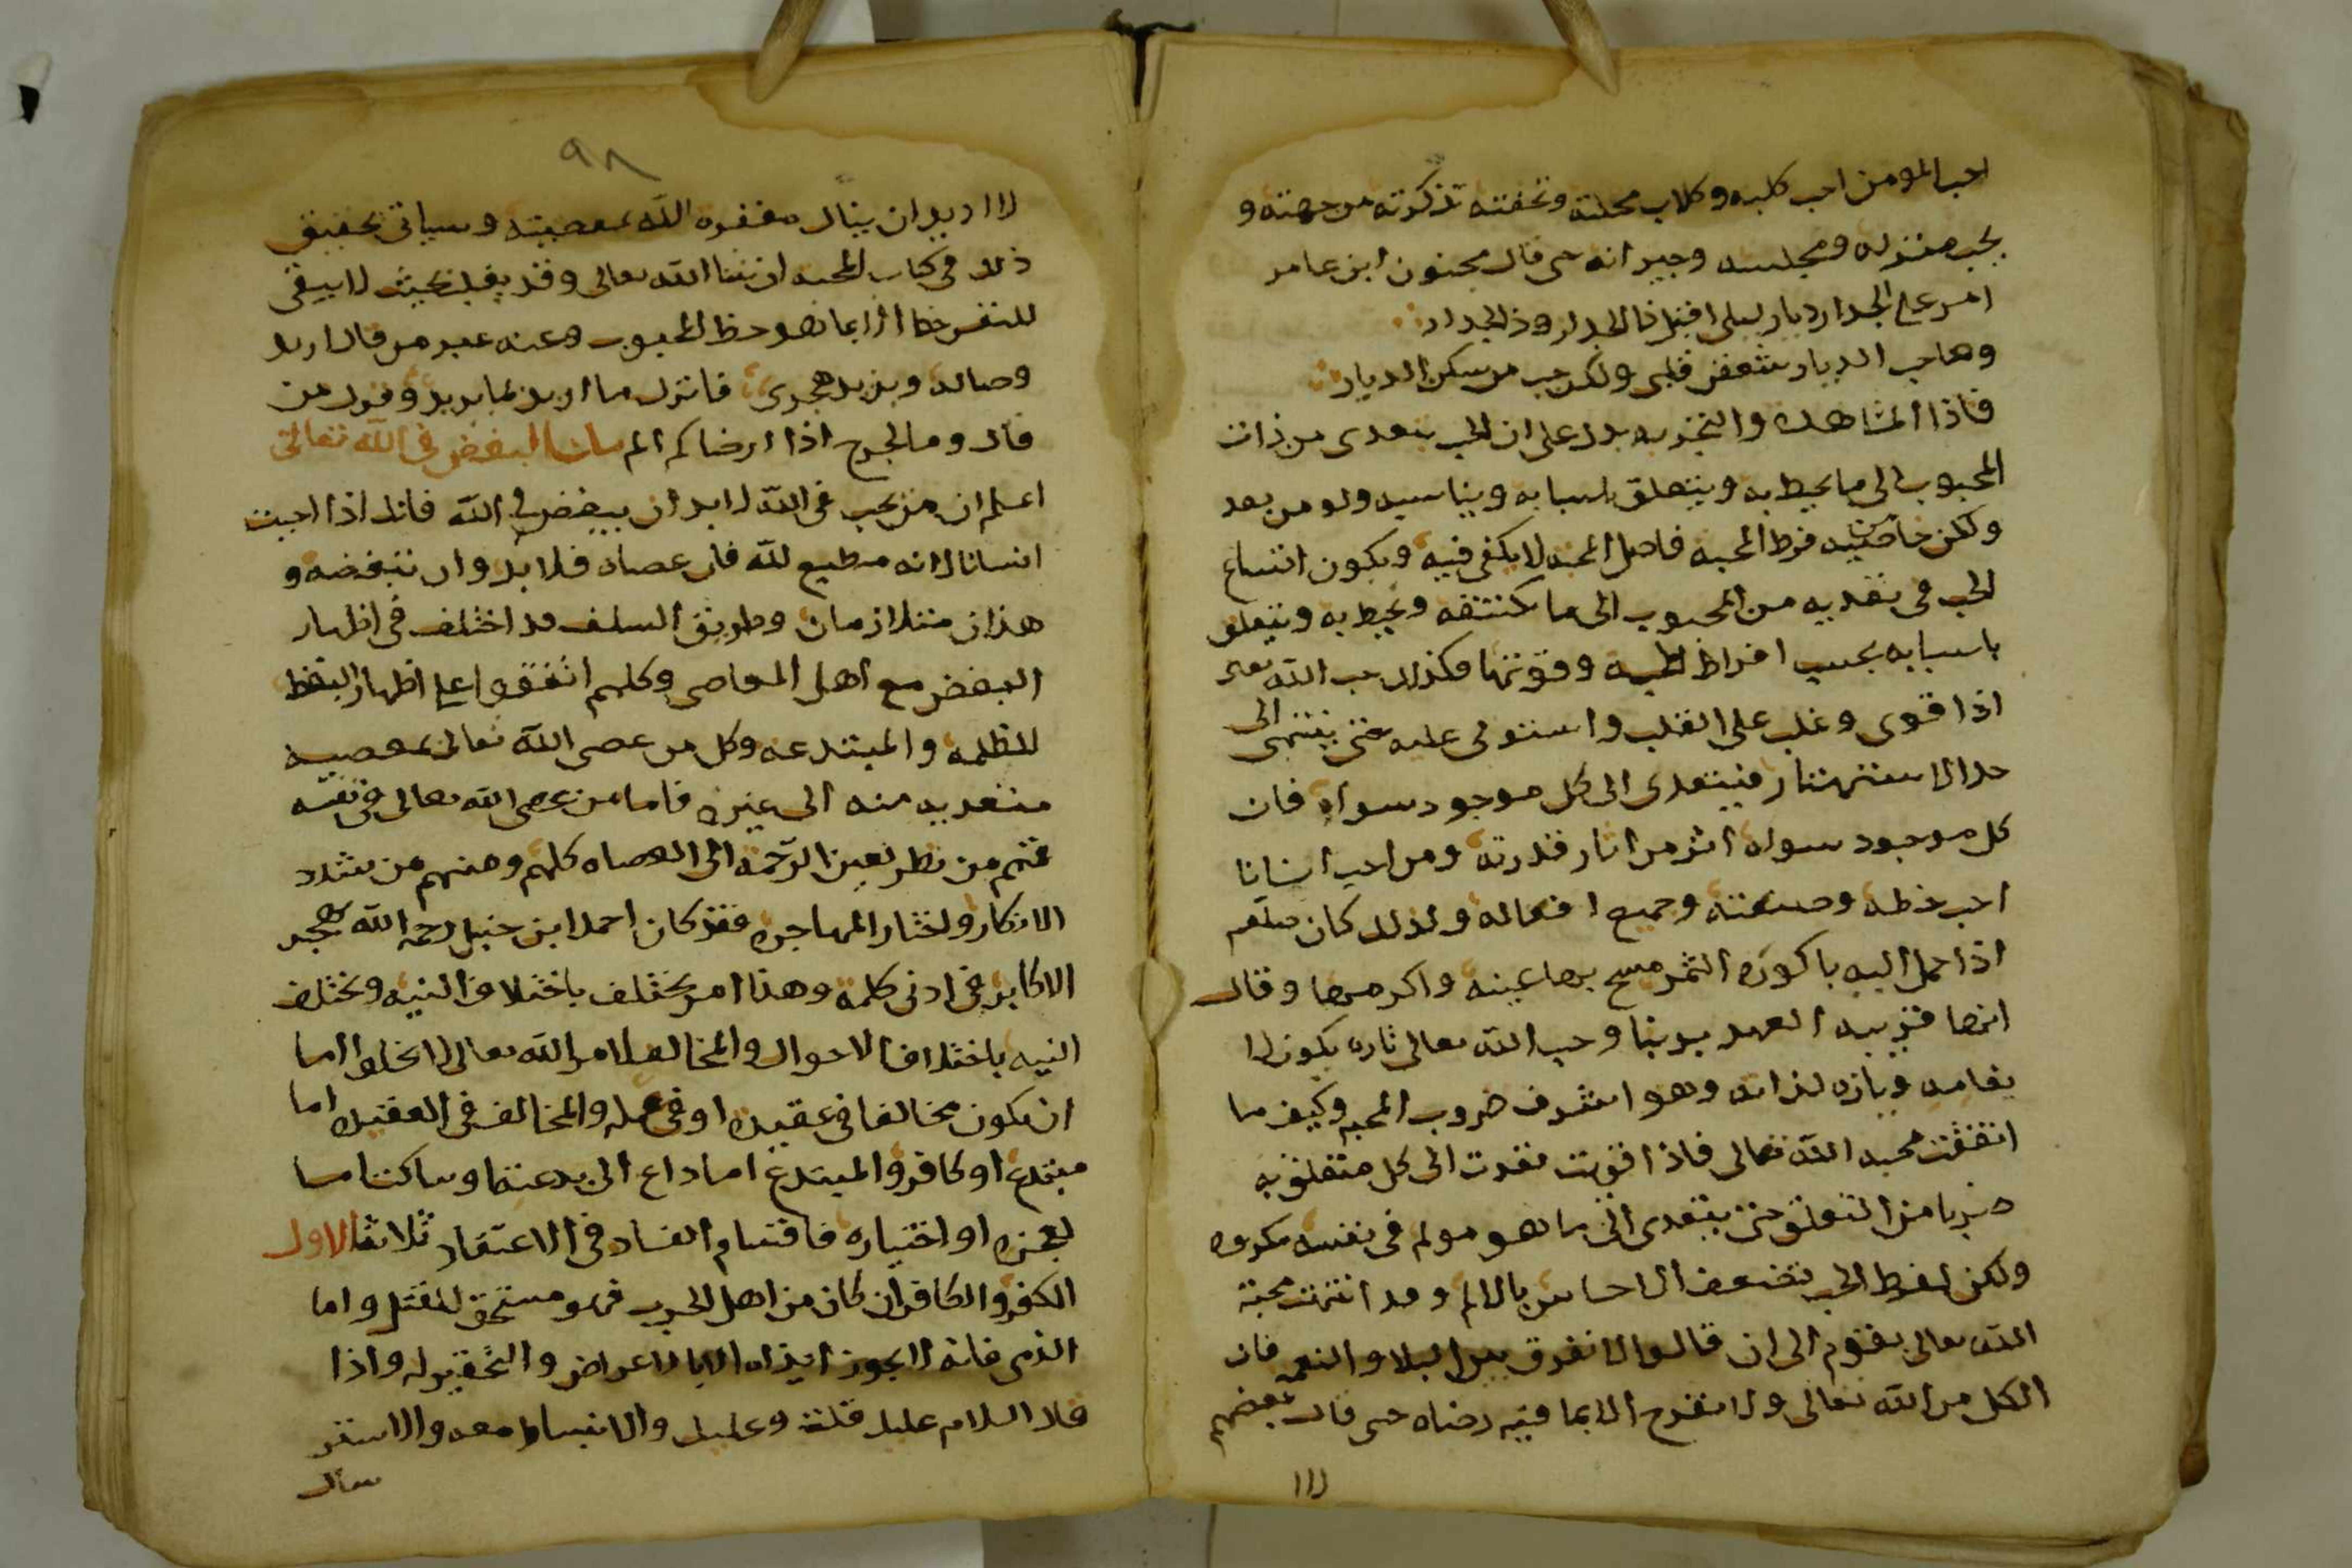 احب المومن احب كلبه وكلاب محلته وتحفته تذكرته من جهته و
يحب منزله ومجلسه وجيرانه حى قال مجنون ابن عامر
امر على الجدار ديار ليلى اقبل ذا الجدار وذا الجدار
وما حب الديار شغفن قلبى ولكن حب من سكن الديار
فاذا المشاهده والتجربه يدل على ان الحب يتعدى من ذات
المحبوب الى ما يحيط به ويتعلق باسبابه ويناسبه ولو من بعد
ولكن خاصيه فرط المحبه فاصل المحبه لا يكفى فيه ويكون اتساع
الحب فى تعديه من المحبوب الى ما يكتنفه ويحيط به ويتعلق
باسبابه بحسب افراط المحبه وقوتها فكذلك حب الله تعالى
اذا قوى وغلب على القلب واستولى عليه حتى ينتهى الى
حد الاستهتار فيتعدى الى كل موجود سواه فان
كل موجود سواه اثر من اثار قدرته ومن احب انسانا
احب خطه وصنعته وجميع افعاله ولذلك كان صلعم
اذا حمل اليه باكوره الثمر مسح بها عينه واكرمها وقال
انها قريبه العهد بربنا وحب الله تعالى تاره يكون لا
لذاته وهو اشرف ضروب المحبه وكيف ما
اتفقت محبه الله تعالى فاذا قويت تعدت الى كل متعلق به
ضربا من التعلق حتى يتعدى الى ما هو مولم فى نفسه مكروه
ولكن لفرط الحب تضعف الاحساس بالالم وقد انتهت محبة
الله تعالى بقوم الى ان قالوا لا نفرق بين البلا والنعمه فان
الكل من الله تعالى ولا نفرح الا بما فيه رضاه حى قال بعضهم
لاا
٩٨
لا اريد ان ينال مغفره الله بمعصيته وسياتى تحقيق
ذلك فى كتاب المحبه ان شا الله تعالى وقد يغلب بحيث لا يبقى
للنفس حظ الا بما هو حظ المحبوب وعنه عبر من قال اريد
وصاله ويريد هجرى فاترك ما اريد لما يريد وقول من
قال وما لجرح اذا ارضاكم الم بيان البغض فى الله تعالى
اعلم ان من يحب فى الله لا بد ان يبغض فى الله فانك اذا احببت
انسانا لانه مطيع لله فان عصاه فلا بد وان تبغضه و
هذان متلازمان وطريق السلف قد اختلف فى اظهار
البغض مع اهل المعاصى وكلهم اتفقوا على اظهار البغض
للظلمه والمبتدعه وكل من عصى الله تعالى بمعصيه
متعديه منه الى غيره فاما من عصى الله تعالى فى نفسه
فمنهم من نظر بعين الرحمة الى العصاه كلهم ومنهم من شدد
الانكار واختار المهاجره فقد كان احمد ابن حنبل رحمه الله يهجر
الاكابر فى ادنى كلمة وهذا امر يختلف باختلاف النيه وتختلف
النيه باختلاف الاحوال والمخالف لامر الله تعالى لا يخلوا اما
ان يكون مخالفا فى عقيده او فى عمله والمخالف فى العقيده اما
مبتدع او كافر والمبتدع اما داع الى بدعته او ساكت اما
لعجزه او اختياره فاقسام الفساد فى الاعتقاد ثلاثه الاول
الكفر والكافر ان كان من اهل الحرب فهو مستحق للقتل واما
الذمى فانه لا يجوز ايذاه الا بالاعراض والتحقير له واذا
قال السلام عليك قلت وعليك والانبساط معه والاستر
سال